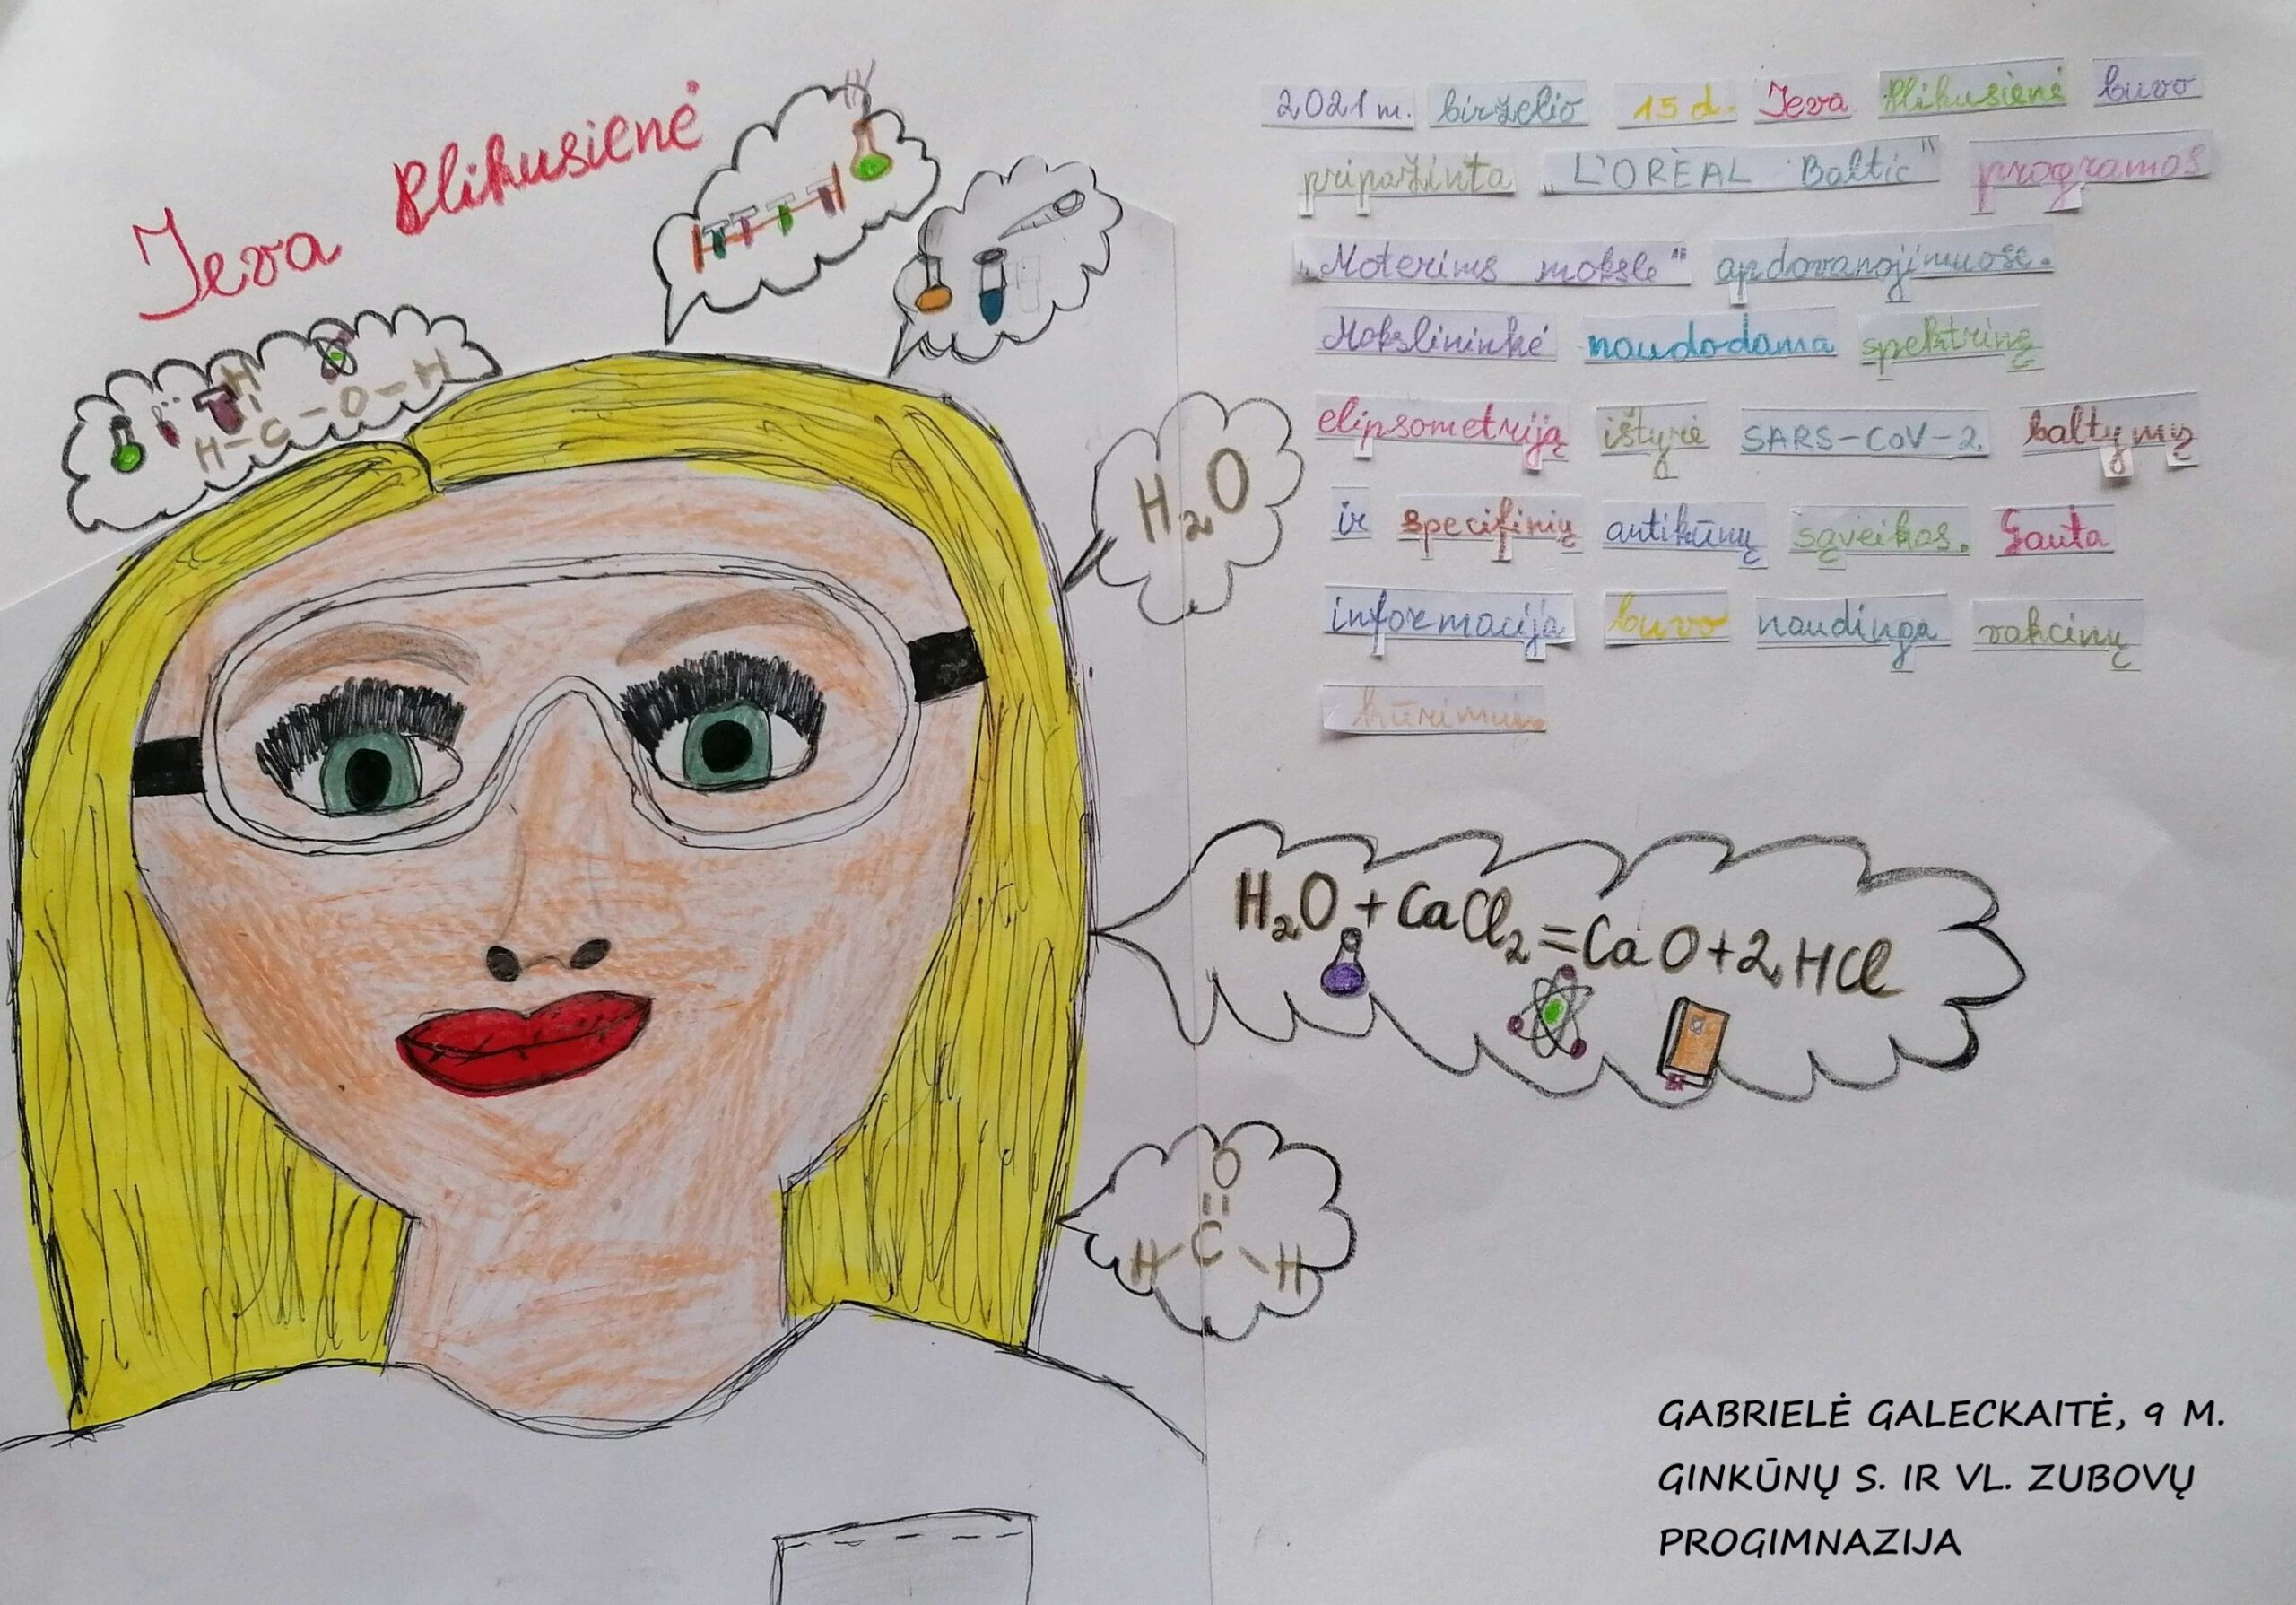 Ieva Plikusienė
H-C-O-H
H
H₂O
2021 m. birželio 15 d. Ieva Plikusienė buvo
pripažinta „L'ORÈAL Baltic" programos
„Moterims moksle" apdovanojimuose.
Mokslininkė naudodama spektrinę
elipsometriją ištyrė SARS-CoV-2 baltymų
ir specifinių antikūnų sąveikas. Gauta
informacija buvo naudinga vakcinų
kūrimui
H₂O + CaCl₂ = CaO + 2HCl
O
C
H H
GABRIELĖ GALECKAITĖ, 9 M.
GINKŪNŲ S. IR VL. ZUBOVŲ
PROGIMNAZIJA